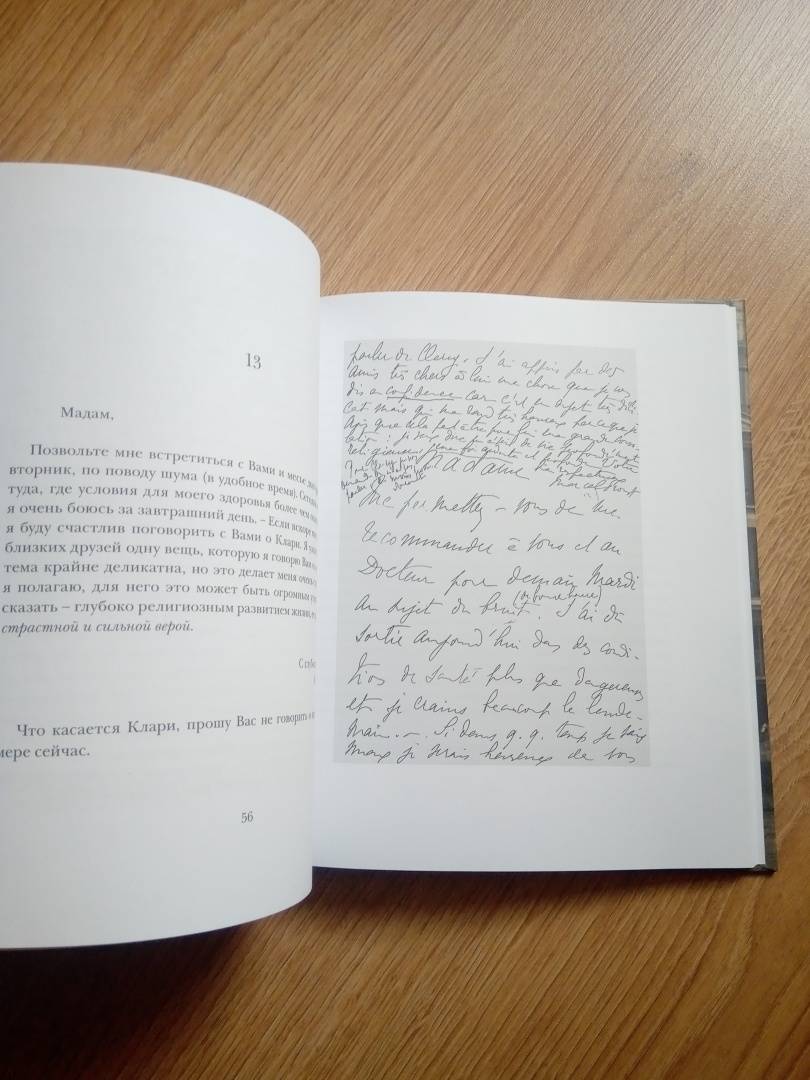 13
Мадам,
Позвольте мне встретиться с Вами и месье
вторник, по поводу шума (в удобное время).
туда, где условия для моего здоровья более чем
я очень боюсь за завтрашний день. – Если вскоре
я буду счастлив поговорить с Вами о Клари. Я
близких друзей одну вещь, которую я говорю
тема крайне деликатна, но это делает меня очень
я полагаю, для него это может быть огромным
сказать – глубоко религиозным развитием жизни,
страстной и сильной верой.
Что касается Клари, прошу Вас не говорить о
мере сейчас.
56
parler de Clary. J'ai appris par des
amis très chers à lui une chose que je vous
dis en confidence car c'est un sujet très déli-
cat mais qui me rend très heureux parce que je
Madame
Marcel Proust
Me permettez-vous de me
recommander à vous et au
Docteur pour demain Mardi
au sujet du bruit. J'ai dû
sortir aujourd'hui dans des condi-
tions de santé plus que dangereuses
et je crains beaucoup le lende-
main. – Si dans q.q. temps je vais
mieux je serais heureux de vous